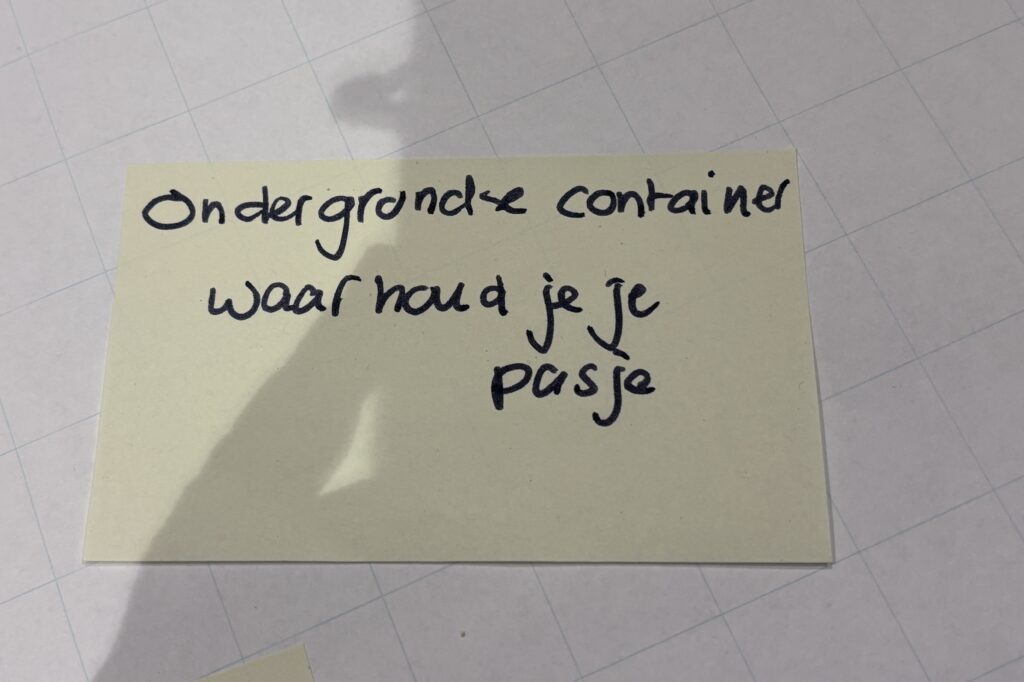 Ondergrondse container
waar houd je je
pasje